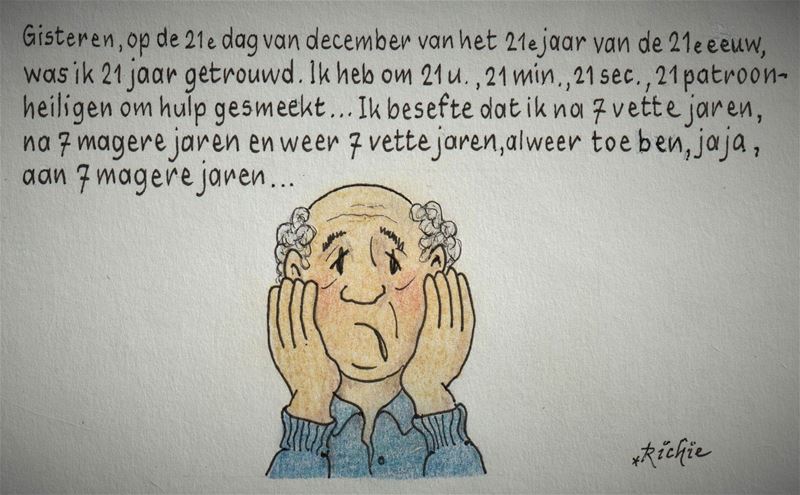 Gisteren, op de 21e dag van december van het 21e jaar van de 21e eeuw,
was ik 21 jaar getrouwd. Ik heb om 21 u., 21 min., 21 sec., 21 patroon-
heiligen om hulp gesmeekt... Ik besefte dat ik na 7 vette jaren,
na 7 magere jaren en weer 7 vette jaren, alweer toe ben, jaja,
aan 7 magere jaren...
*Richie